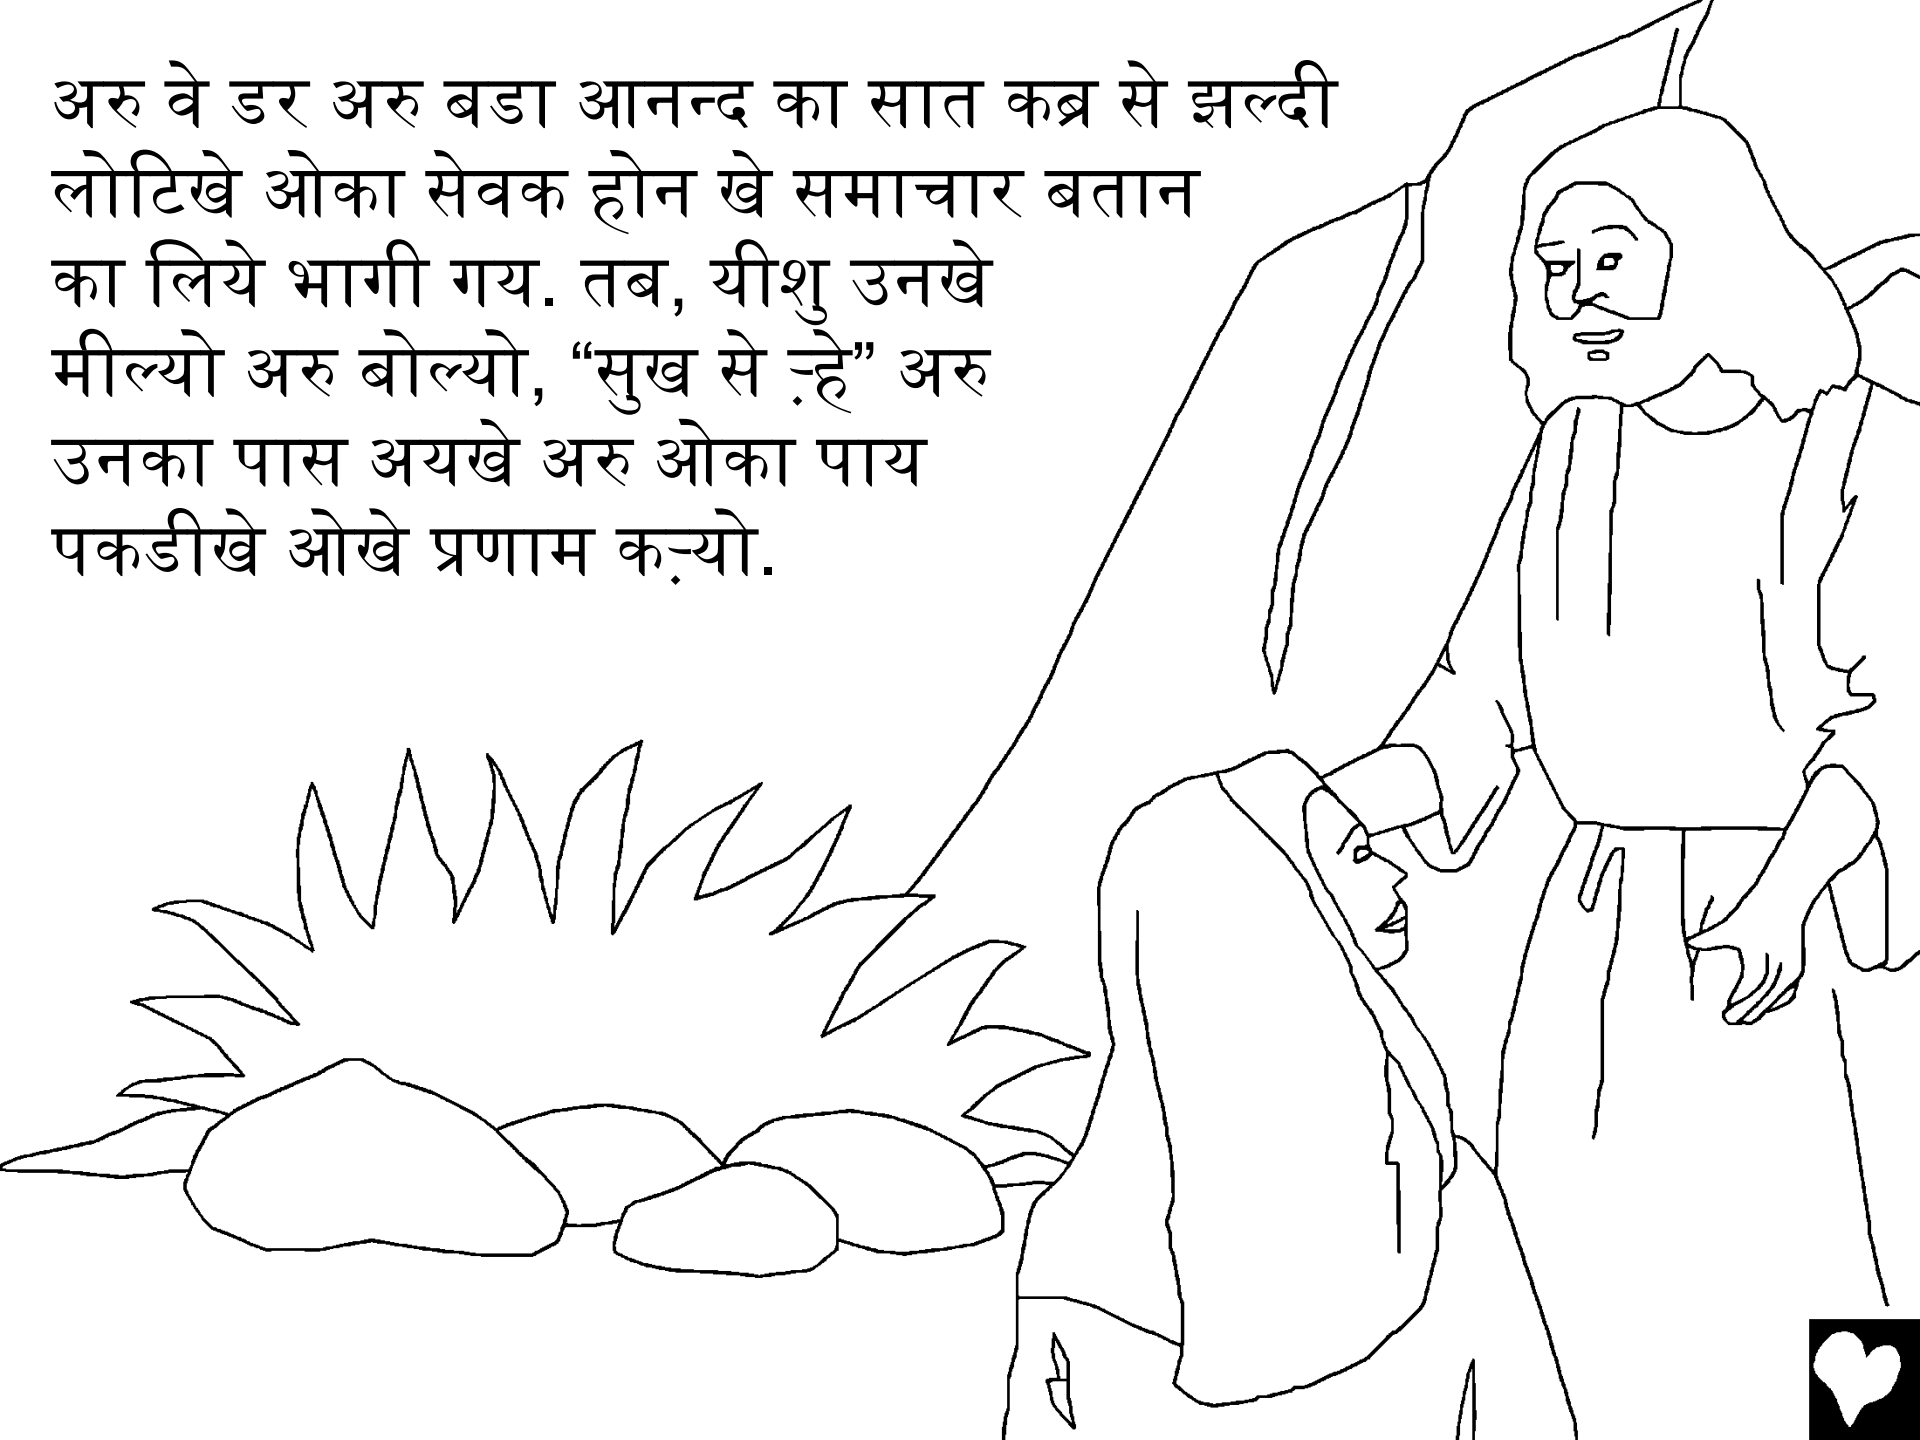 अरु वे डर अरु बडा आनन्द का सात कब्र से झल्दी
लोटिखे ओका सेवक होन खे समाचार बतान
का लिये भागी गय. तब, यीशु उनखे
मील्यो अरु बोल्यो, “सुख से ऱ्हे” अरु
उनका पास अयखे अरु ओका पाय
पकडीखे ओखे प्रणाम कऱ्यो.